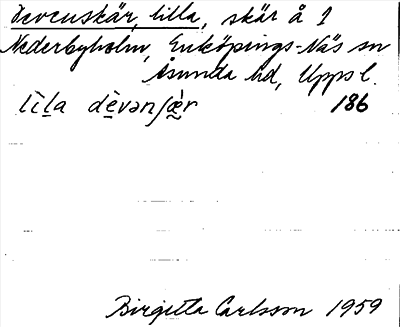 Devenskär, lilla, skär å 1
Nederbyholm, Enköpings-Näs sn
Åsunda hd, Upps l.
lìl̠a dè̠vənʃæ̠̀r 186
Birgitta Carlsson 1959